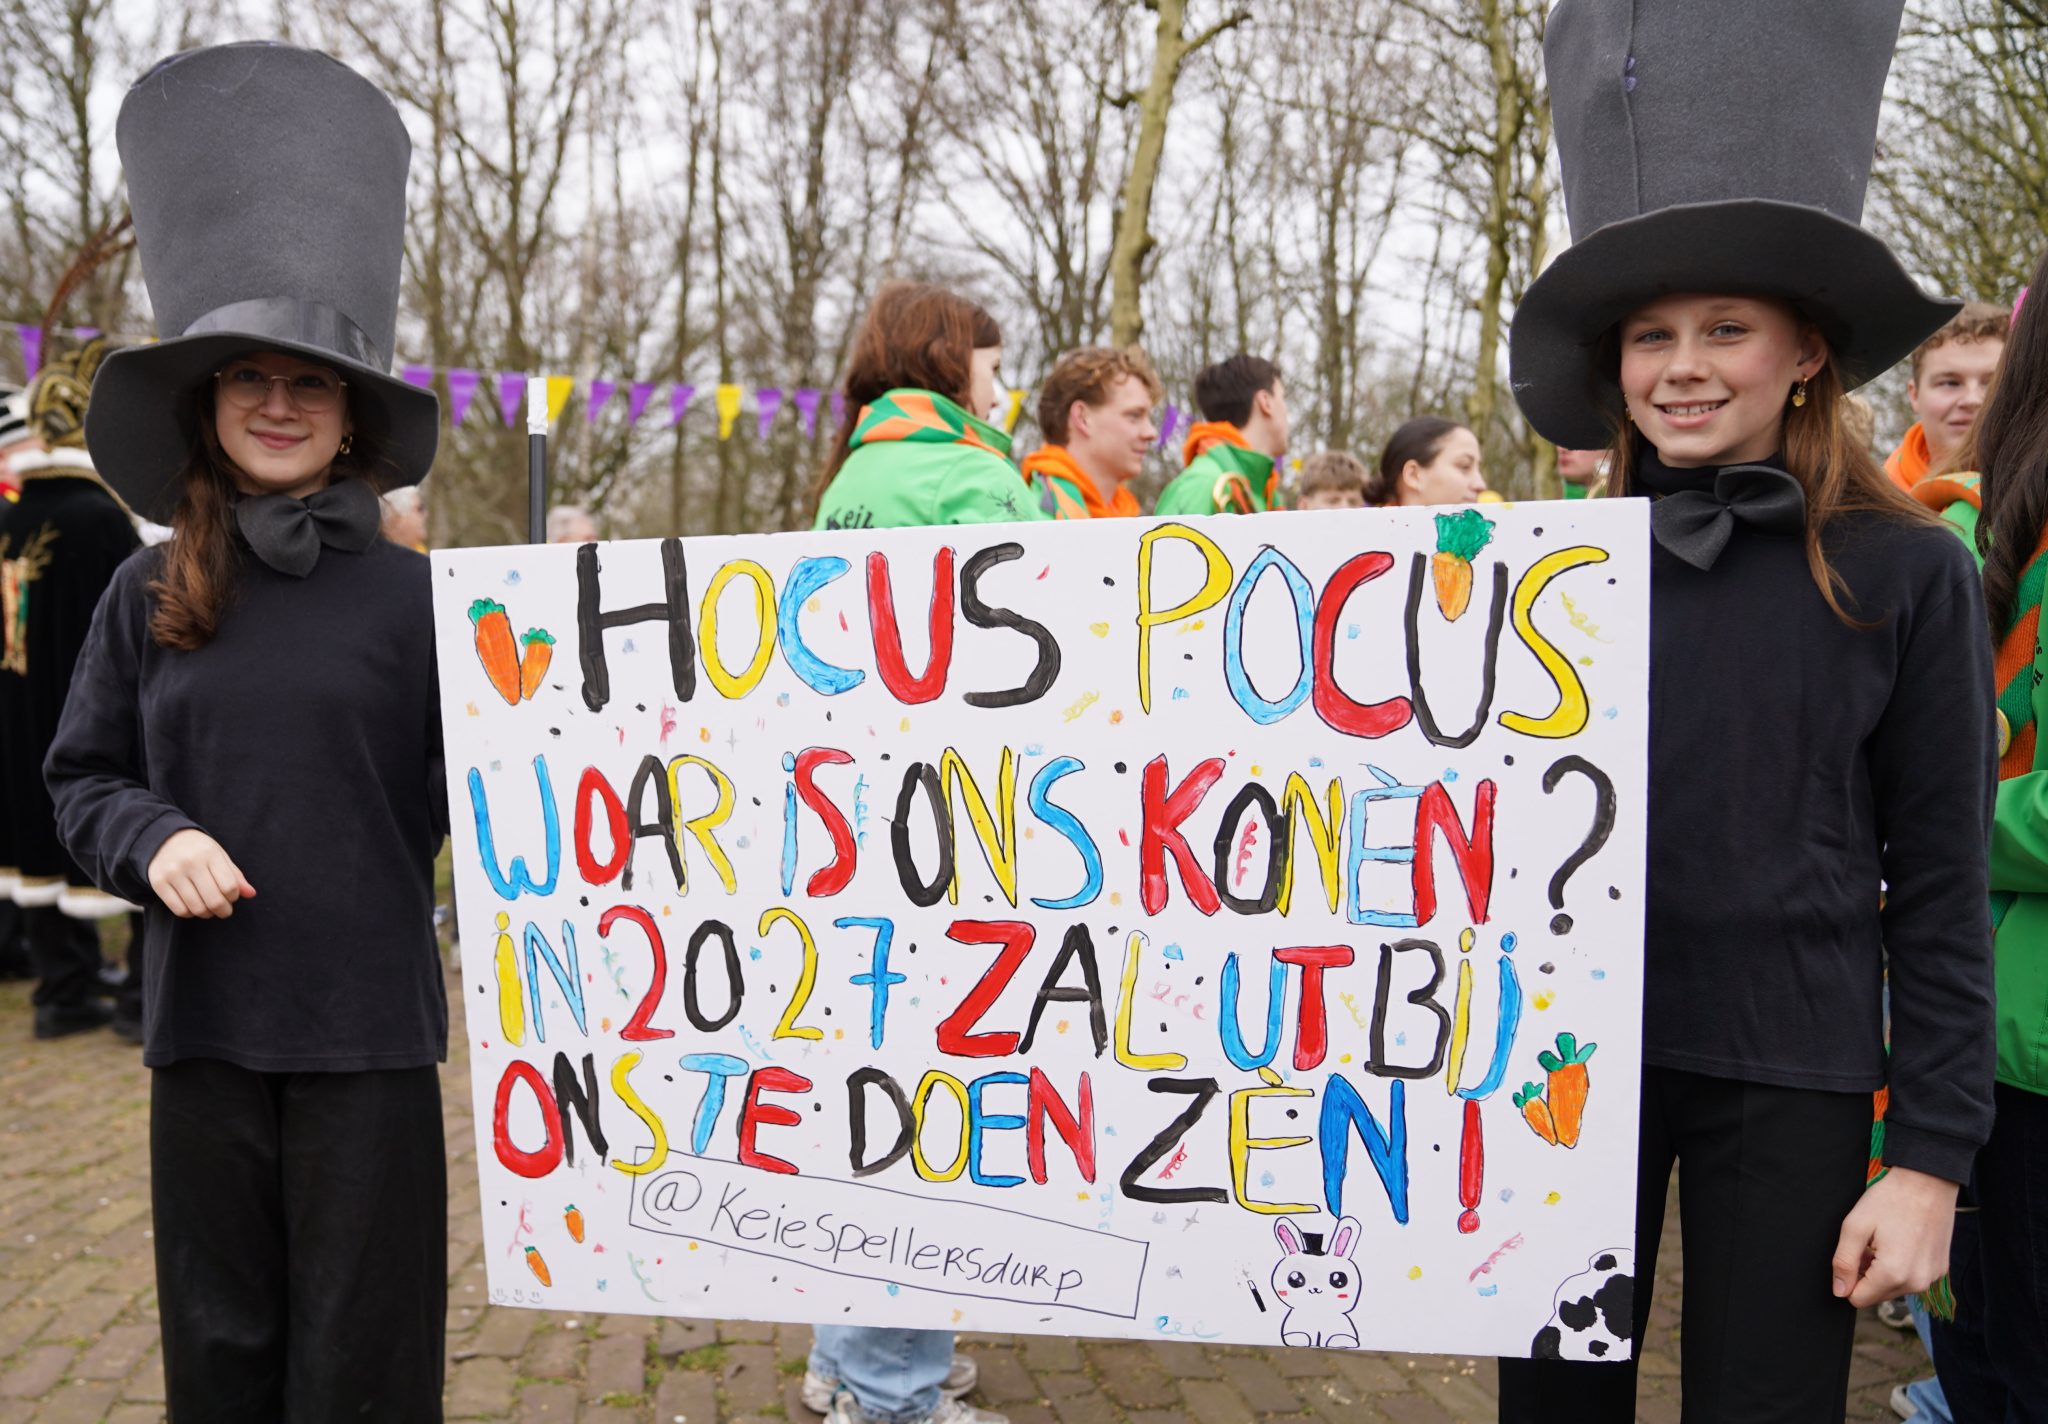 HOCUS POCUS
WOAR iS ONS KONÈN?
iN 2027 ZAL UT BIJ
ONS TE DOEN ZÈN!
@KeieSpellersdurp